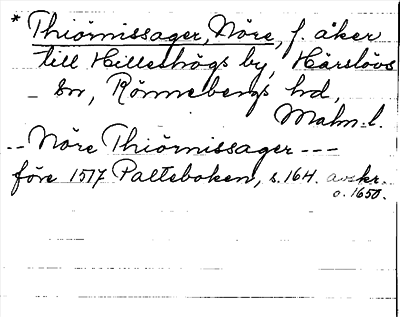 * Thiörnissager, Nöre, f. åker
till Hilleshögs by, Härslövs
sn, Rönnebergs hd,
Malm. l.
-- Nöre Thiörnissager ---
före 1517 Palteboken, s. 164. avskr.
o. 1650.